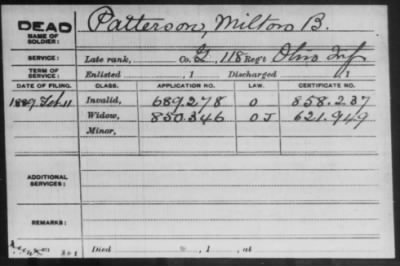 DEAD Patterson, Milton B.
NAME OF SOLDIER:
SERVICE: Late rank, Co. G, 118 Reg't Ohio Inf
TERM OF SERVICE: Enlisted , 1 Discharged , 1
DATE OF FILING. CLASS. APPLICATION NO. LAW. CERTIFICATE NO.
1889 Feb 11 Invalid, 689.278 O 858.237
Widow, 850.346 O J 621.949
Minor,
ADDITIONAL SERVICES:
REMARKS:
Died , 1 , at